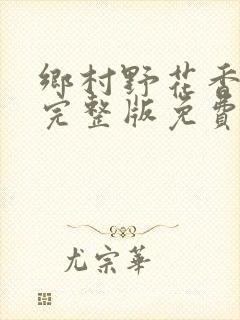 鄉村野花香
完整版免費
尤宗華